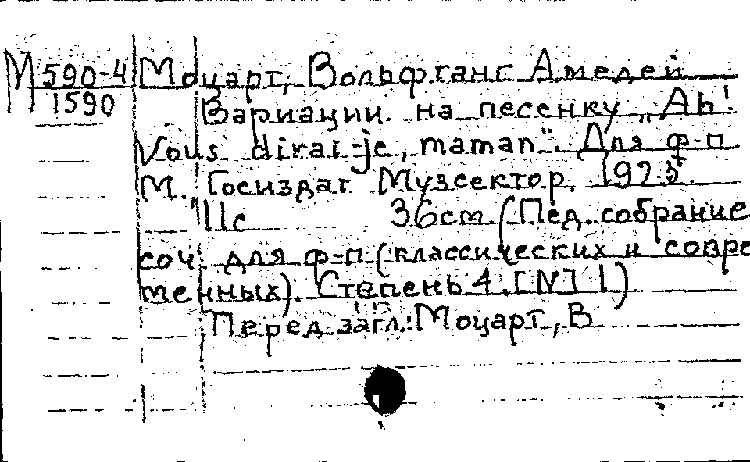 М 590-4 Моцарт, Вольфганг Амедей
1590 Вариации на песенку „Ah!
Vous dirai-je, maman". Для ф-п
М. Госиздат Музсектор. 1925.
11с 36cm (Пед. собрание
соч. для ф-п (классических и совре
менных). Степень 4. [N] 1)
Перед загл.: Моцарт, В